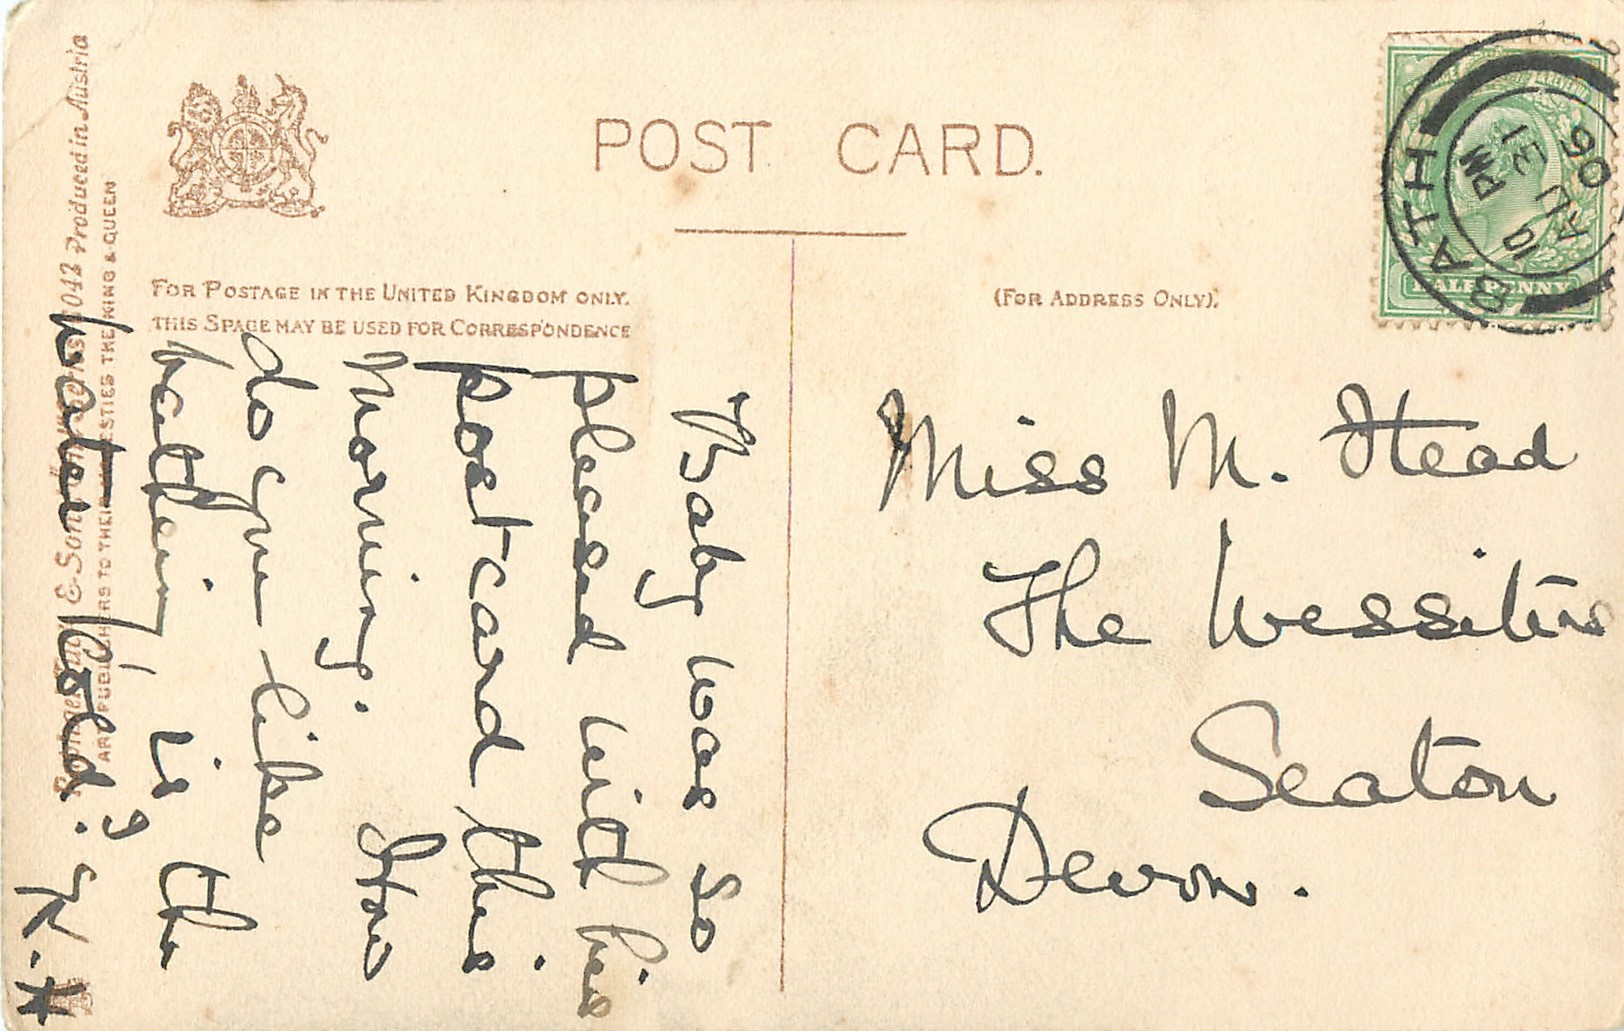 POST CARD.
FOR POSTAGE IN THE UNITED KINGDOM ONLY.
THIS SPACE MAY BE USED FOR CORRESPONDENCE
(FOR ADDRESS ONLY).
Baby was so
pleased with his
postcard this
morning. How
do you like
bathing, is the
water cold? K.H
Miss M. Head
The Wessiters
Seaton
Devon.
BATH
PM
AU 31
06
HALFPENNY
& Sons
Produced in Austria
ART PUBLISHERS TO THEIR MAJESTIES THE KING & QUEEN